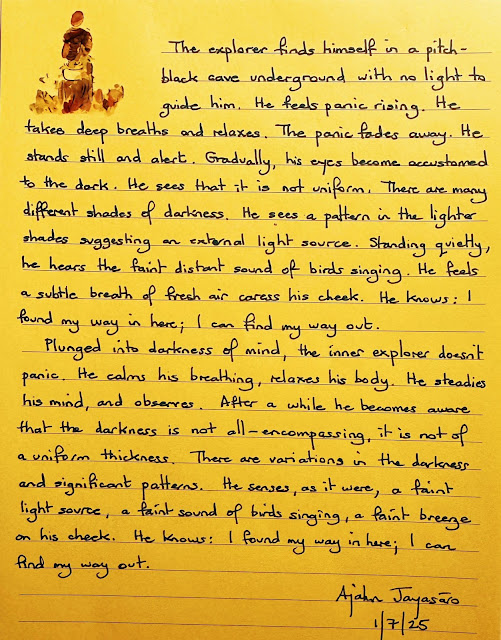 The explorer finds himself in a pitch-
black cave underground with no light to
guide him. He feels panic rising. He
takes deep breaths and relaxes. The panic fades away. He
stands still and alert. Gradually, his eyes become accustomed
to the dark. He sees that it is not uniform. There are many
different shades of darkness. He sees a pattern in the lighter
shades suggesting an external light source. Standing quietly,
he hears the faint distant sound of birds singing. He feels
a subtle breath of fresh air caress his cheek. He knows: I
found my way in here; I can find my way out.
Plunged into darkness of mind, the inner explorer doesn't
panic. He calms his breathing, relaxes his body. He steadies
his mind, and observes. After a while he becomes aware
that the darkness is not all-encompassing, it is not of
a uniform thickness. There are variations in the darkness
and significant patterns. He senses, as it were, a faint
light source, a faint sound of birds singing, a faint breeze
on his cheek. He knows: I found my way in here; I can
find my way out.
Ajahn Jayasāro
1/7/25